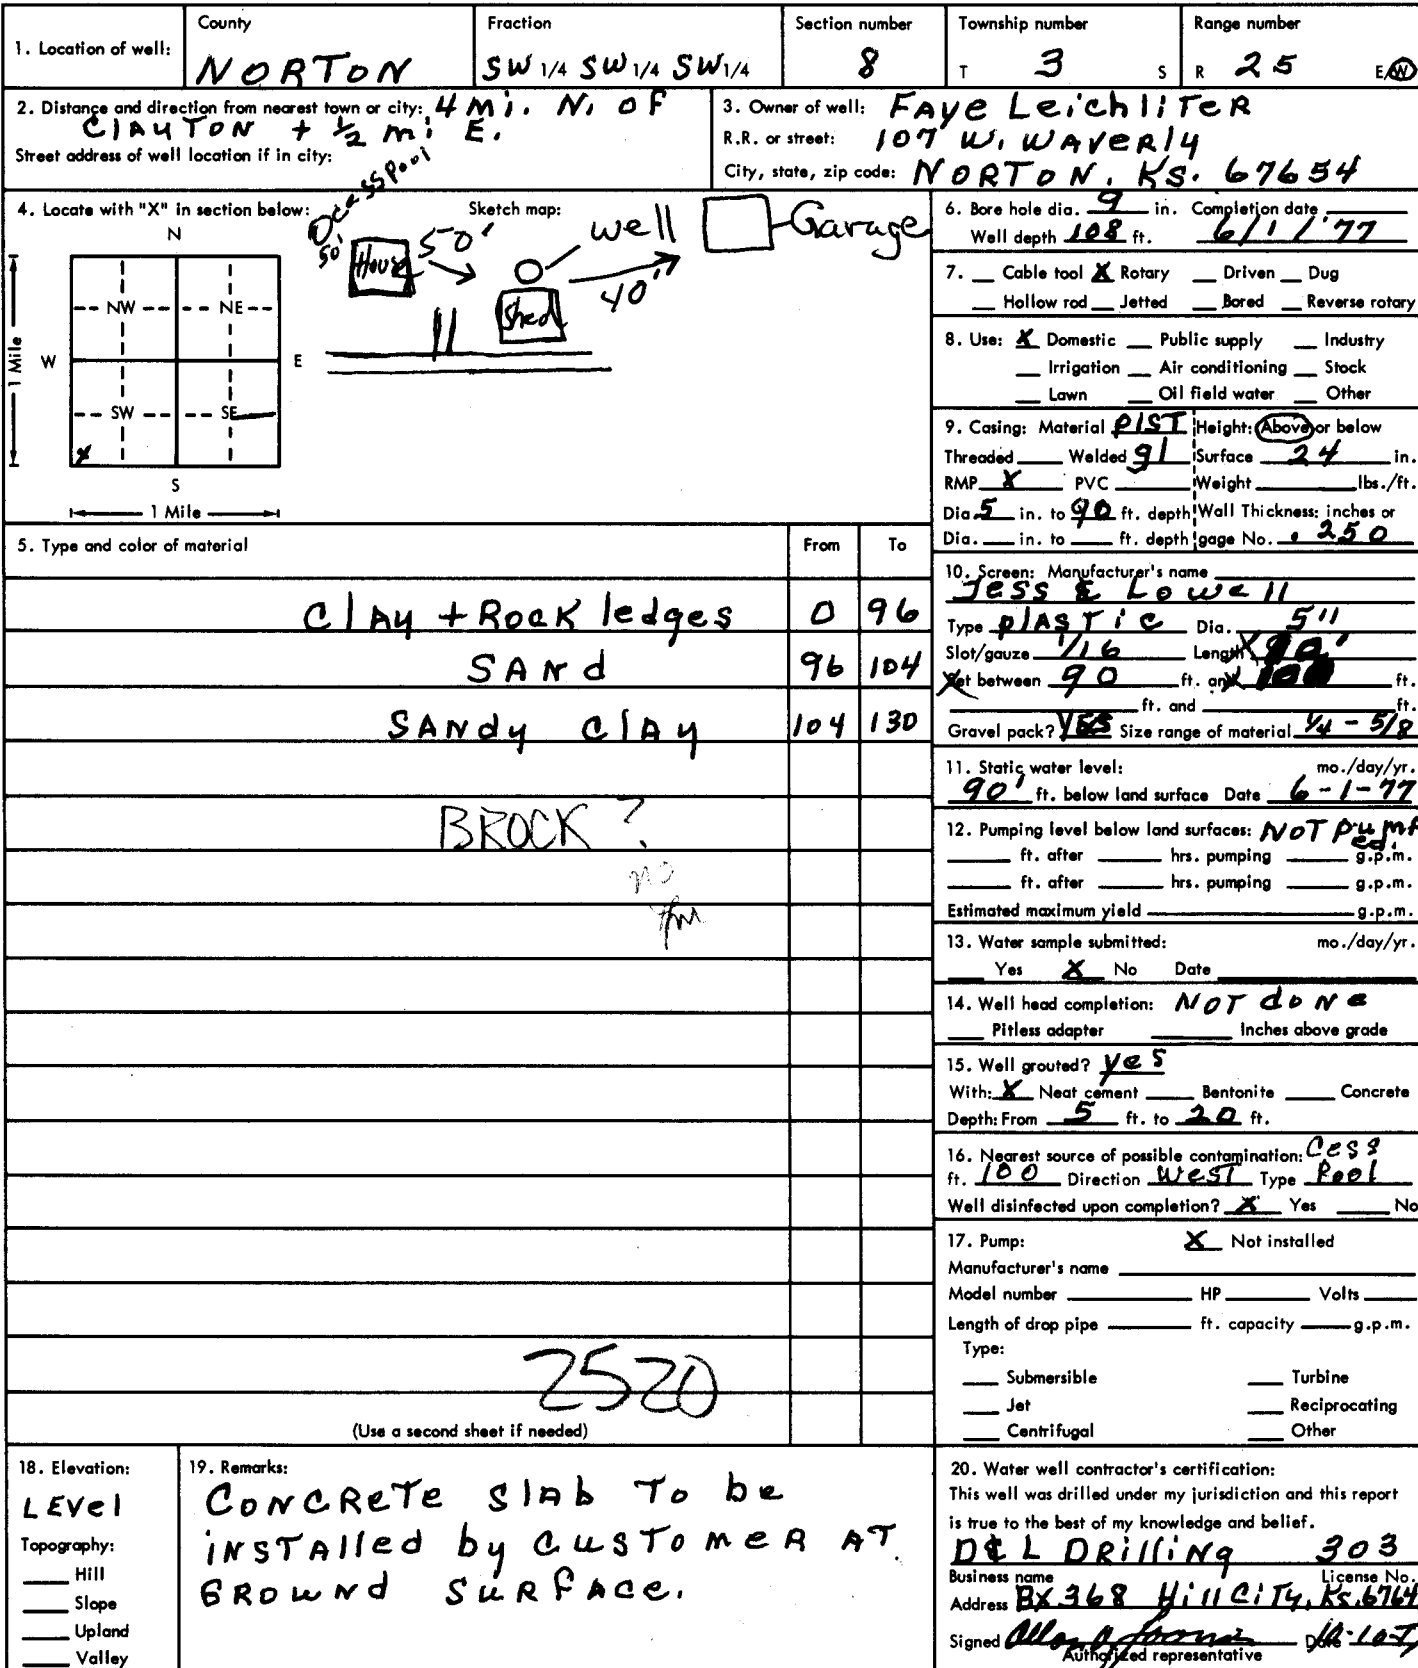 1. Location of well:
County
NORTON
Fraction
SW 1/4 SW 1/4 SW 1/4
Section number
8
Township number
T 3 S
Range number
R 25 E/W
2. Distance and direction from nearest town or city: 4 mi. N. OF
CLAYTON + 1/2 mi E.
Street address of well location if in city:
3. Owner of well: FAYE LeichliTeR
R.R. or street: 107 W. WAVERLY
City, state, zip code: NORTON, KS. 67654
4. Locate with "X" in section below:
Sketch map:
N
NW NE
W E
SW SE
X
S
1 Mile
1 Mile
Cesspool
50'
House
50'
well
Shed
40'
Garage
5. Type and color of material From To
Clay + Rock ledges 0 96
SANd 96 104
SANdy ClAy 104 130
BROCK?
no
2520
(Use a second sheet if needed)
6. Bore hole dia. 9 in. Completion date
Well depth 108 ft. 6/1/'77
7. Cable tool X Rotary Driven Dug
Hollow rod Jetted Bored Reverse rotary
8. Use: X Domestic Public supply Industry
Irrigation Air conditioning Stock
Lawn Oil field water Other
9. Casing: Material plST Height: Above or below
Threaded Welded gl Surface 24 in.
RMP X PVC Weight lbs./ft.
Dia. 5 in. to 90 ft. depth Wall Thickness: inches or
Dia. in. to ft. depth gage No. .250
10. Screen: Manufacturer's name
Jess & Lowell
Type plASTic Dia. 5"
Slot/gauze 1/16 Length
Set between 90 ft. and 100 ft.
ft. and ft.
Gravel pack? YES Size range of material 1/4 - 5/8
11. Static water level: mo./day/yr.
90' ft. below land surface Date 6-1-77
12. Pumping level below land surfaces: NOT pumped.
ft. after hrs. pumping g.p.m.
ft. after hrs. pumping g.p.m.
Estimated maximum yield g.p.m.
13. Water sample submitted: mo./day/yr.
Yes X No Date
14. Well head completion: NOT doNe
Pitless adapter Inches above grade
15. Well grouted? yes
With: X Neat cement Bentonite Concrete
Depth: From 5 ft. to 20 ft.
16. Nearest source of possible contamination: Cess
ft. 100 Direction WesT Type Pool
Well disinfected upon completion? X Yes No
17. Pump: X Not installed
Manufacturer's name
Model number HP Volts
Length of drop pipe ft. capacity g.p.m.
Type:
Submersible Turbine
Jet Reciprocating
Centrifugal Other
18. Elevation:
LEVel
Topography:
Hill
Slope
Upland
Valley
19. Remarks:
CONCReTe SlAb To be
iNSTAlled by CUSTOMER AT
GROWND SURFACE.
20. Water well contractor's certification:
This well was drilled under my jurisdiction and this report
is true to the best of my knowledge and belief.
D & L DRilliNg 303
Business name License No.
Address BX 368 Hill CiTy, Ks. 6764
Signed Date
Authorized representative